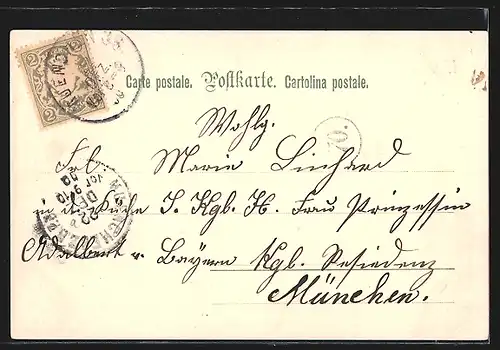 Carte postale. Postkarte. Cartolina postale.
Wohlg.
70.
Marie Linhard
I. Kgl. H. Frau Prinzessin
Adalbert v. Bayern Kgl. Residenz
München.
2 2
2 2
22
DEZ